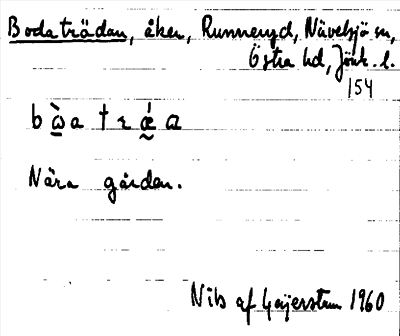 Bodaträdan, åker, Runneryd, Nävelsjö sn,
Östra hd, Jönk. l.
154
Nära gården.
Nils af Geijerstam 1960